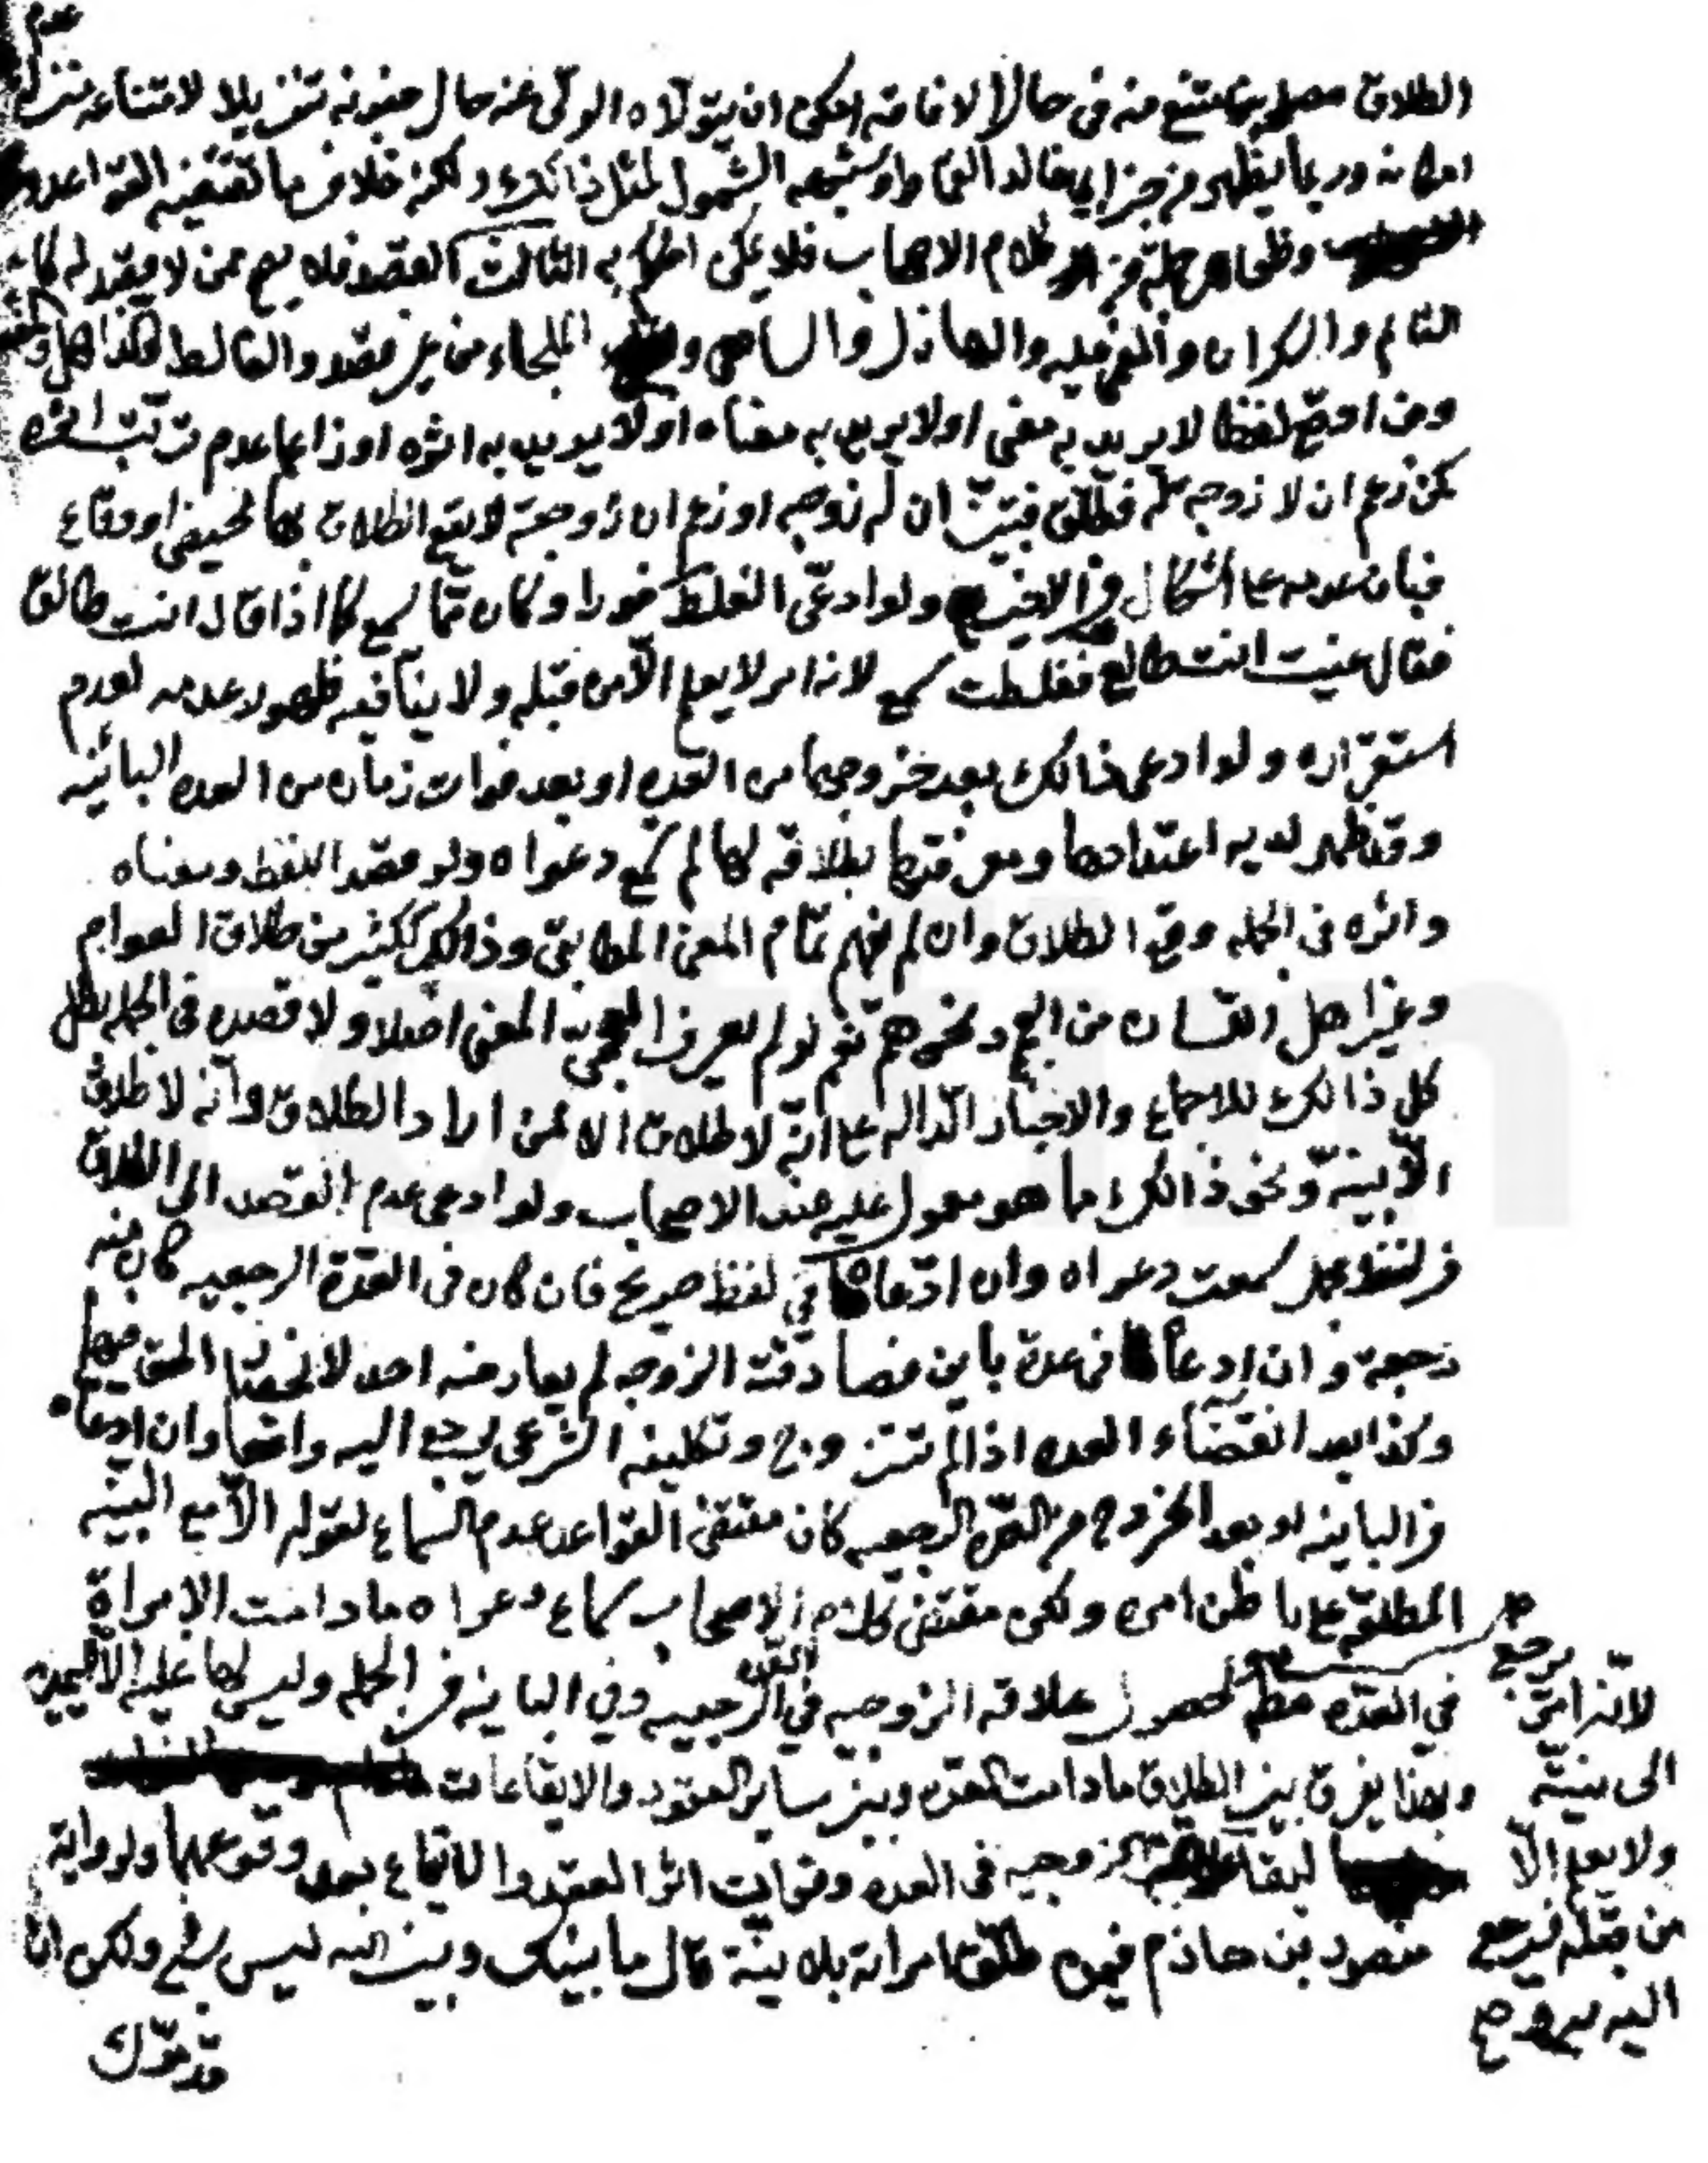 عدم
الطلاق مصلحة فامتنع منه في حال الافاقه امكن ان يتولاه الولي عنه حال جنونه تنزيلا لامتناعه منزلة
امكانه وربما يظهر من خبر ابي خالد القماط وشبهه الشمول لمثل ذالك ولكنه خلاف ما تقتضيه القواعد
وظاهر جملة من كلام الاصحاب فلا يمكن الحكم به الثالث القصد فلا يصح ممن لا قصد له كا
النائم والسكران والمغمى عليه والهازل والساهي و الملجاء من غير قصد والغالط وكذا كل
ومن اوقع لفظا لا يريد به معنى اولا يريد به معناه اولا يريد به اثره او زاعما عدم ترتب اثره
كمن زعم ان لا زوجه له فطلق فتبين ان له زوجه او زعم ان زوجته لا يقع الطلاق بها لحيض او وقاع
فبان عدمه على اشكال في الاخير ولو ادعى الغلط فورا وكان مما يسمع كما اذا قال انت طالق
فقال عنيت انت طالع فغلطت سمع لانه امر لا يعلم الا من قبله ولا ينافيه ظهور عدمه لعدم
استقراره ولو ادعى ذالك بعد خروجها من العده او بعد فوات زمان من العده البائنه
وقد ظهر لديه اعتدادها ومعرفتها بطلاقه لها لم تسمع دعواه ولو قصد اللفظ ومعناه
واثره في الجمله وقع الطلاق وان لم يفهم تمام المعنى المطابقي وذالك ككثير من طلاق العوام
وغير اهل اللسان من العجم ونحوهم نعم لو لم يعرف العجمي المعنى اصلا ولا قصده في الجمله بطل
كل ذالك للاجماع والاخبار الداله على انه لا طلاق الا لمن اراد الطلاق وانه لا طلاق
الا بنيه ونحو ذالك مما هو معول عليه عند الاصحاب ولو ادعى عدم القصد الى الطلاق
في لفظ مجمل سمعت دعواه وان ادعاه في لفظ صريح فان كان في العدة الرجعيه كان منه
رجعة وان ادعاه في عدة باين فصادقته الزوجه لم يعارضه احد لانحصار الحق فيهما
وكذا بعد انقضاء العده اذا لم تتزوج وتكليفه الشرعي يرجع اليه واقعا وان ادعاه
في الباينه او بعد الخروج من العده الرجعيه كان مقتضى القواعد عدم السماع لقوله الا مع البينه
المطلقه على ما ظن امره ولكن مقتضى كلام الاصحاب سماع دعواه ما دامت الامراة
في العده مطلقا لحصول علاقه الزوجيه في العده الرجعيه وفي الباينه في الجمله وليس لها عليه الا اليمين
وبهذا يفرق بين الطلاق ما دامت العده وبين ساير العقود والايقاعات
لبقاء علاقة الزوجيه في العده وفوات اثر العقد والايقاع بعد وقوعهما ولرواية
منصور بن حازم فيمن طلق امراته بلا نية قال ما بينك وبين الله ليس بشئ ولكن ان
قدموك
يرجع
لانه امر
الى نيته
ولا يعلم الا
من قبله فيرجع
اليه